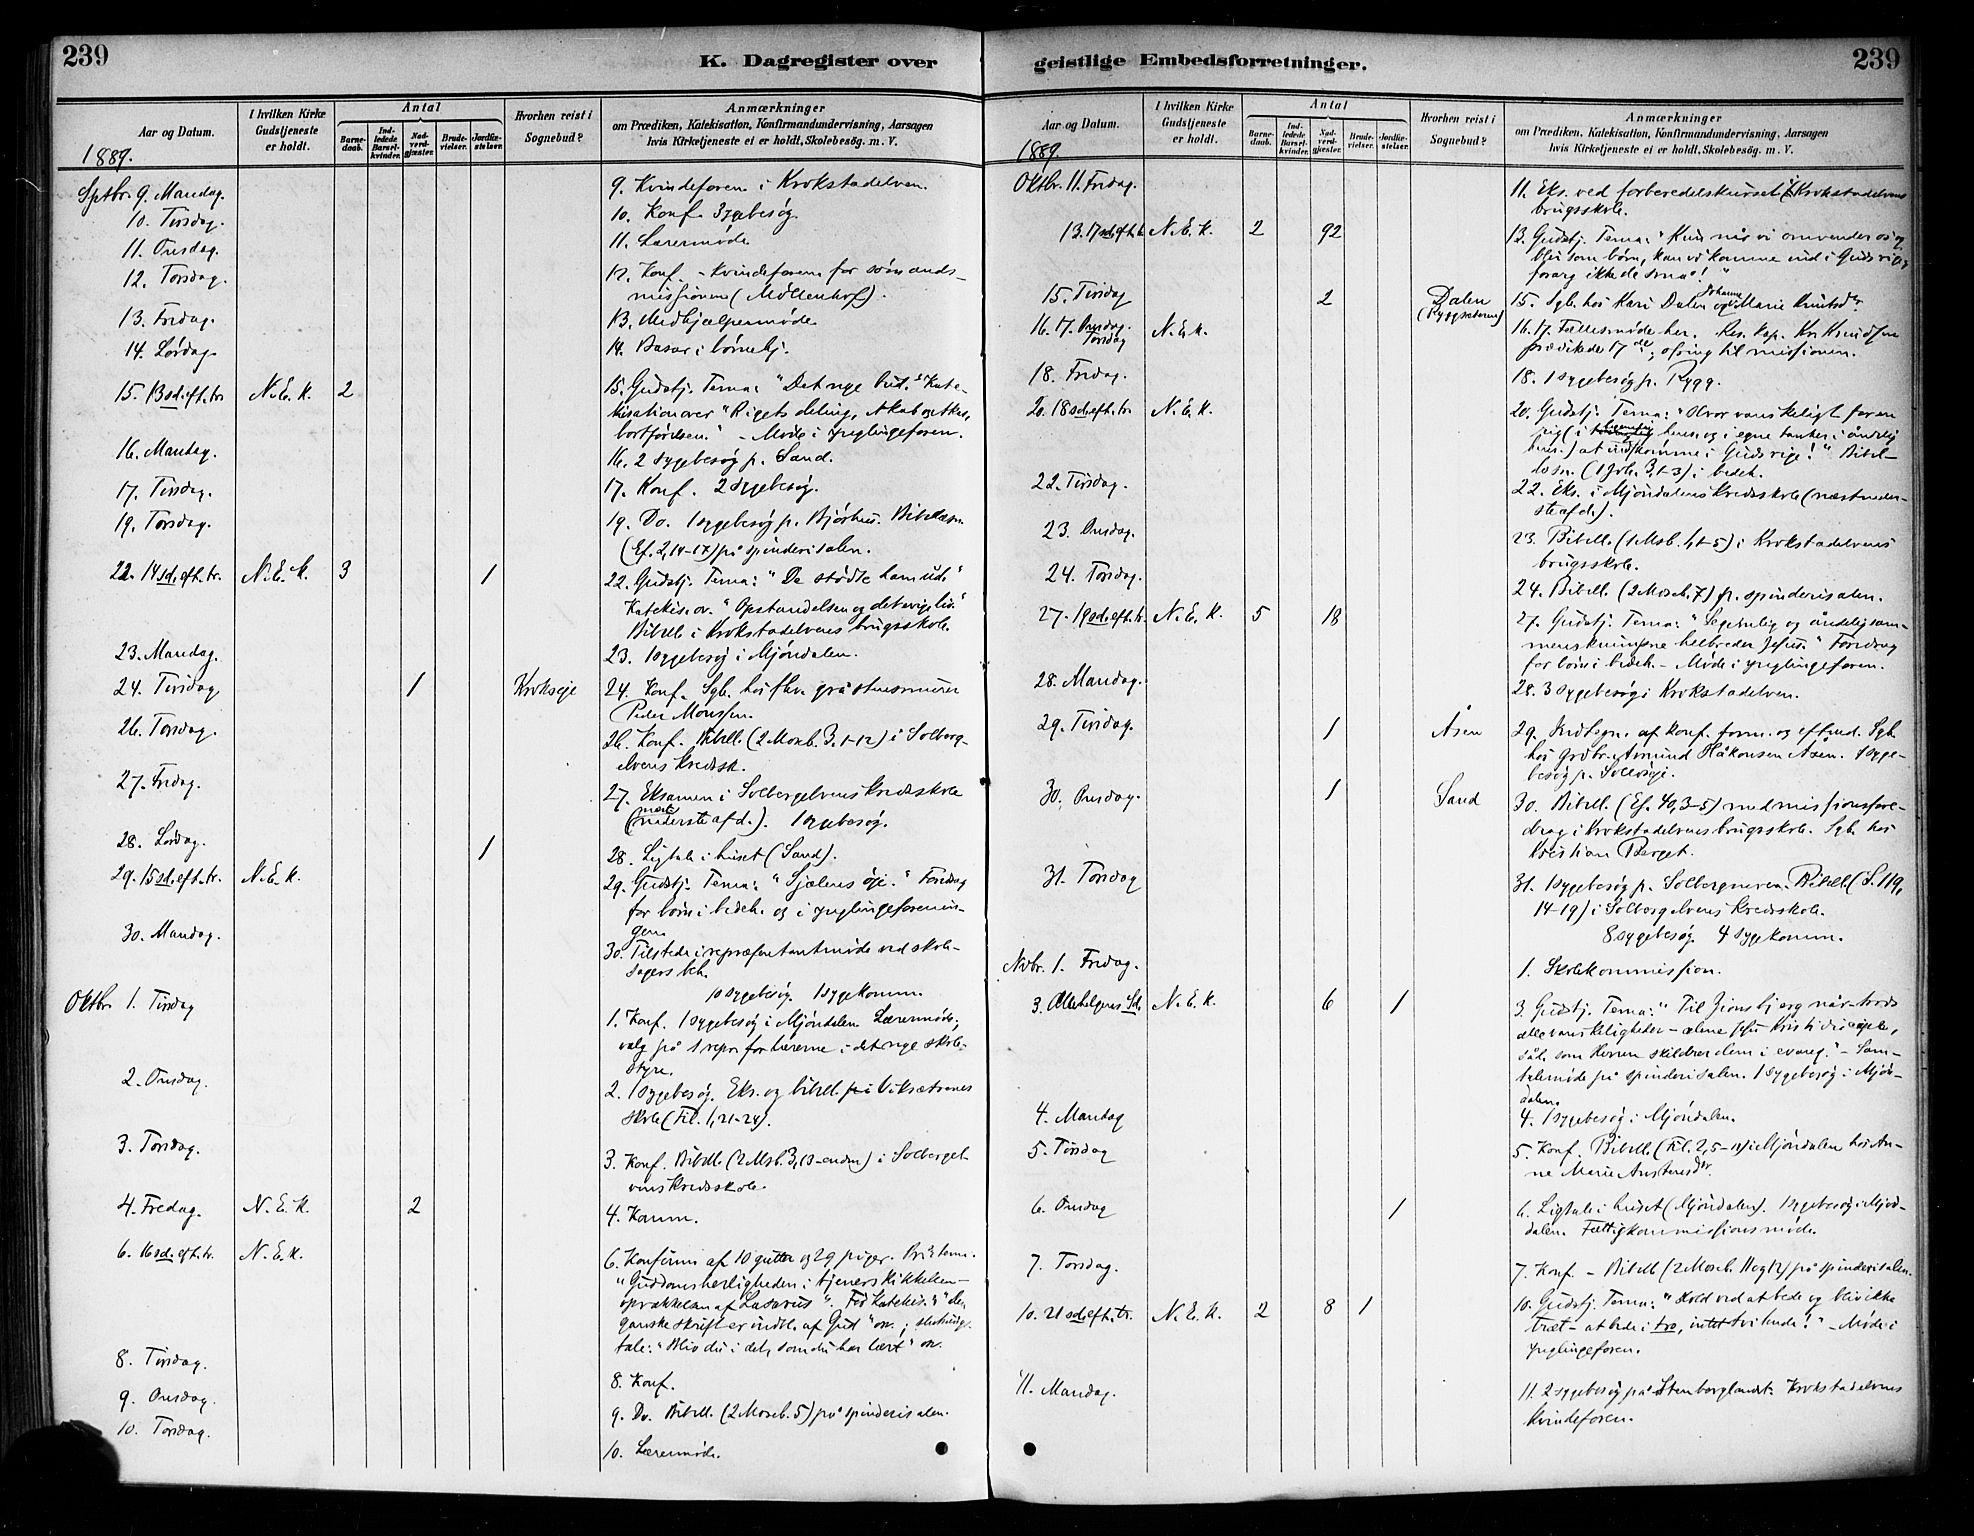 239
K. Dagregister over
Aar og Datum.
I hvilken Kirke Gudstjeneste er holdt.
Antal
Barne-daab.
Ind-ledede Barsel-kvinder.
Nad-verd-gjæster.
Brude-vielser.
Jordfæ-stelser.
Hvorhen reist i Sognebud?
Anmærkninger
om Prædiken, Katekisation, Konfirmandundervisning, Aarsagen
hvis Kirketjeneste ei er holdt, Skolebesög. m. V.
1889.
Sptbr. 9. Mandag. 9. Kvindeforen. i Krokstadelven.
10. Tirsdag. 10. Konf. 3 sygebesøg.
11. Onsdag. 11. Lærermøde
12. Torsdag. 12. Konf. - Kvindeforen. for sømands-
missionen (Møllenhof).
13. Fredag. 13. Medhjælpermøde
14. Lørdag. 14. Basar i børnehj.
15. 13 sd. eft. tr. N. E. K. 2 15. Gudstj. Tema: "Det nye bud." Kate-
kisation over "Rigets deling,
bortførelsen." - Møde i ynglingeforen.
16. Mandag. 16. 2 sygebesøg p. Sand.
17. Tirsdag. 17. Konf. 2 sygebesøg.
19. Torsdag. 19. Do. 1 sygebesøg p. Bjørhus. Bibellæsn.
(Ef. 2,14-17) på spinderisalen.
22. 14 sd. eft. tr. N. E. K. 3 1 22. Gudstj. Tema: "De stødte ham ud"
Katekis. ov. "Opstandelsen og det evige liv."
Bibell. i Krokstadelvens brugsskole.
23. Mandag. 23. 1 sygebesøg i Mjøndalen.
24. Tirsdag 1 Krokseje 24. Konf. Sgb. hos fhv. gråstensmurer
Peder Monssen.
26. Torsdag. 26. Konf. Bibell. (2 Moseb. 3, 1-12) i Solberg-
elvens kredssk.
27. Fredag. 27. Eksamen i Solbergelvens kredsskole
(næstnederste afd.). 1 sygebesøg.
28. Lørdag. 1 28. Ligtale i huset (Sand).
29. 15 sd. eft. tr. N. E. K. 29. Gudstj. Tema: "Sjælens øje." Foredrag
for børn i bedeh. og i ynglingeforenin-
gen.
30. Mandag. 30. Tilstede i repræsentantmøde ved skole-
sagers beh.
10 sygebesøg. 1 sygekomm.
Oktbr. 1. Tirsdag 1. Konf. 1 sygebesøg i Mjøndalen. Lærermøde;
valg på 1 repr. for lærerne i det nye skole-
styre.
2. Onsdag. 2. 1 sygebesøg. Eks. og bibell. i Viksætrenes
skole (Fil. 1, 21-24).
3. Torsdag. 3. Konf. Bibell. (2 Msb. 3, 13-enden) i Solbergel-
vens kredsskole.
4. Fredag. N. E. K. 2 4. Komm.
6. 16 sd. eft. tr. N. E. K. 6. Konfirm. af 10 gutter og 29 piger. Præk. tema:
"Guddomsherligheden i tjenerskikkelsen -
opvækkelsen af Lasarus". Ved katekis.: "den
ganske skrift er indbl. af Gud" osv.; slutnings-
tale: "Bliv du i det, som du har lært" osv.
8. Tirsdag. 8. Konf.
9. Onsdag. 9. Do. Bibell. (2 Moseb. 5) på spinderisalen.
10. Torsdag. 10. Lærermøde.
geistlige Embedsforretninger.
239
Aar og Datum.
I hvilken Kirke Gudstjeneste er holdt.
Antal
Barne-daab.
Ind-ledede Barsel-kvinder.
Nad-verd-gjæster.
Brude-vielser.
Jordfæ-stelser.
Hvorhen reist i Sognebud?
Anmærkninger
om Prædiken, Katekisation, Konfirmandundervisning, Aarsagen
hvis Kirketjeneste ei er holdt, Skolebesög. m. V.
1889.
Oktbr. 11. Fredag. 11. Eks. ved forberedelseskurset i Krokstadelvens
brugsskole.
13. 17 sd. eft. tr. N. E. K. 2 92 13. Gudstj. Tema: "Kun når vi omvender os og
bli som børn, kan vi komme ind i Guds rige;
forarg ikke de små!"
15. Tirsdag 2 Dalen (Ryggsetern) 15. Sgb. hos Kari Dalen og Johanne Marie Knutsdr.
16. 17. Onsdag. Torsdag N. E. K. 16. 17. Fællesmøde her. Res. kap. Kr. Knudsen
prædikede 17de, ofring til missionen.
18. Fredag. 18. 1 sygebesøg p. Rygg.
20. 18 sd. eft. tr. N. E. K. 20. Gudstj. Tema: "Hvor vanskeligt for en
rig (i legemlig hens. og i egne tanker i åndelig
hens.) at indkomme i Guds rige!" Bibel-
læsn. (1 Joh. 3, 1-3) i bedeh.
22. Tirsdag. 22. Eks. i Mjøndalens kredsskole (næstneder-
ste afd.).
23. Onsdag. 23. Bibell. (1 Msb. 4, 1-5) i Krokstadelvens
brugsskole.
24. Torsdag. 24. Bibell. (2 Moseb. 7) p. spinderisalen.
27. 19 sd. eft. tr. N. E. K. 5 18 27. Gudstj. Tema: "Legemlig og åndelig sam-
menskrumpne helbreder Jesus" Foredrag
for børn i bedeh. - Møde i ynglingeforen.
28. Mandag. 28. 3 sygebesøg i Krokstadelven.
29. Tirsdag. 1 Åsen 29. Indtegn. af konf. form. og efterm. Sgb.
hos grdbr. Amund Håkonsen Åsen. 1 syge-
besøg p.
30. Onsdag. 1 Sand 30. Bibell. (Ef. 40, 3-5) med missionsfore-
drag i Krokstadelvens brugsskole. Sgb. hos
Kristian Berget.
31. Torsdag 31. 1 sygebesøg p. Solbergmoen. Bibell. (S. 119,
14-19) i Solbergelvens kredsskole.
8 sygebesøg. 4 sygekomm.
Novbr. 1. Fredag. 1. Skolekommission.
3. Allehelgens Sd. N. E. K. 6 1 3. Gudstj. Tema: "Til Zions bjerg når - trods
alle vanskeligheder - alene Jesu Kristi disciple,
såd. som Herren skildrer dem i evang." - Sam-
talemøde på spinderisalen. 1 sygebesøg i Mjøn-
dalen.
4. Mandag 4. 1 sygebesøg i Mjøndalen.
5. Tirsdag 5. Konf. Bibell. (Fil. 2, 5-11) i Mjøndalen hos An-
ne Marie Anstensdr.
6. Onsdag 1 6. Ligtale i huset (Mjøndalen). 1 sygebesøg i Mjøn-
dalen. Fattigkommissionsmøde.
7. Torsdag. 7. Konf. - Bibell. (2 Moseb. 11 og 12) på spinderisalen.
10. 21 sd. eft. tr. N. E. K. 2 8 1 10. Gudstj. Tema: "Hold ved at bede og bliv ikke
træt - at bede i tro, intet tvilende!" - Møde i
ynglingeforen.
11. Mandag. 11. 2 sygebesøg på Stenberglandet. Krokstadelvens
kvindeforen.